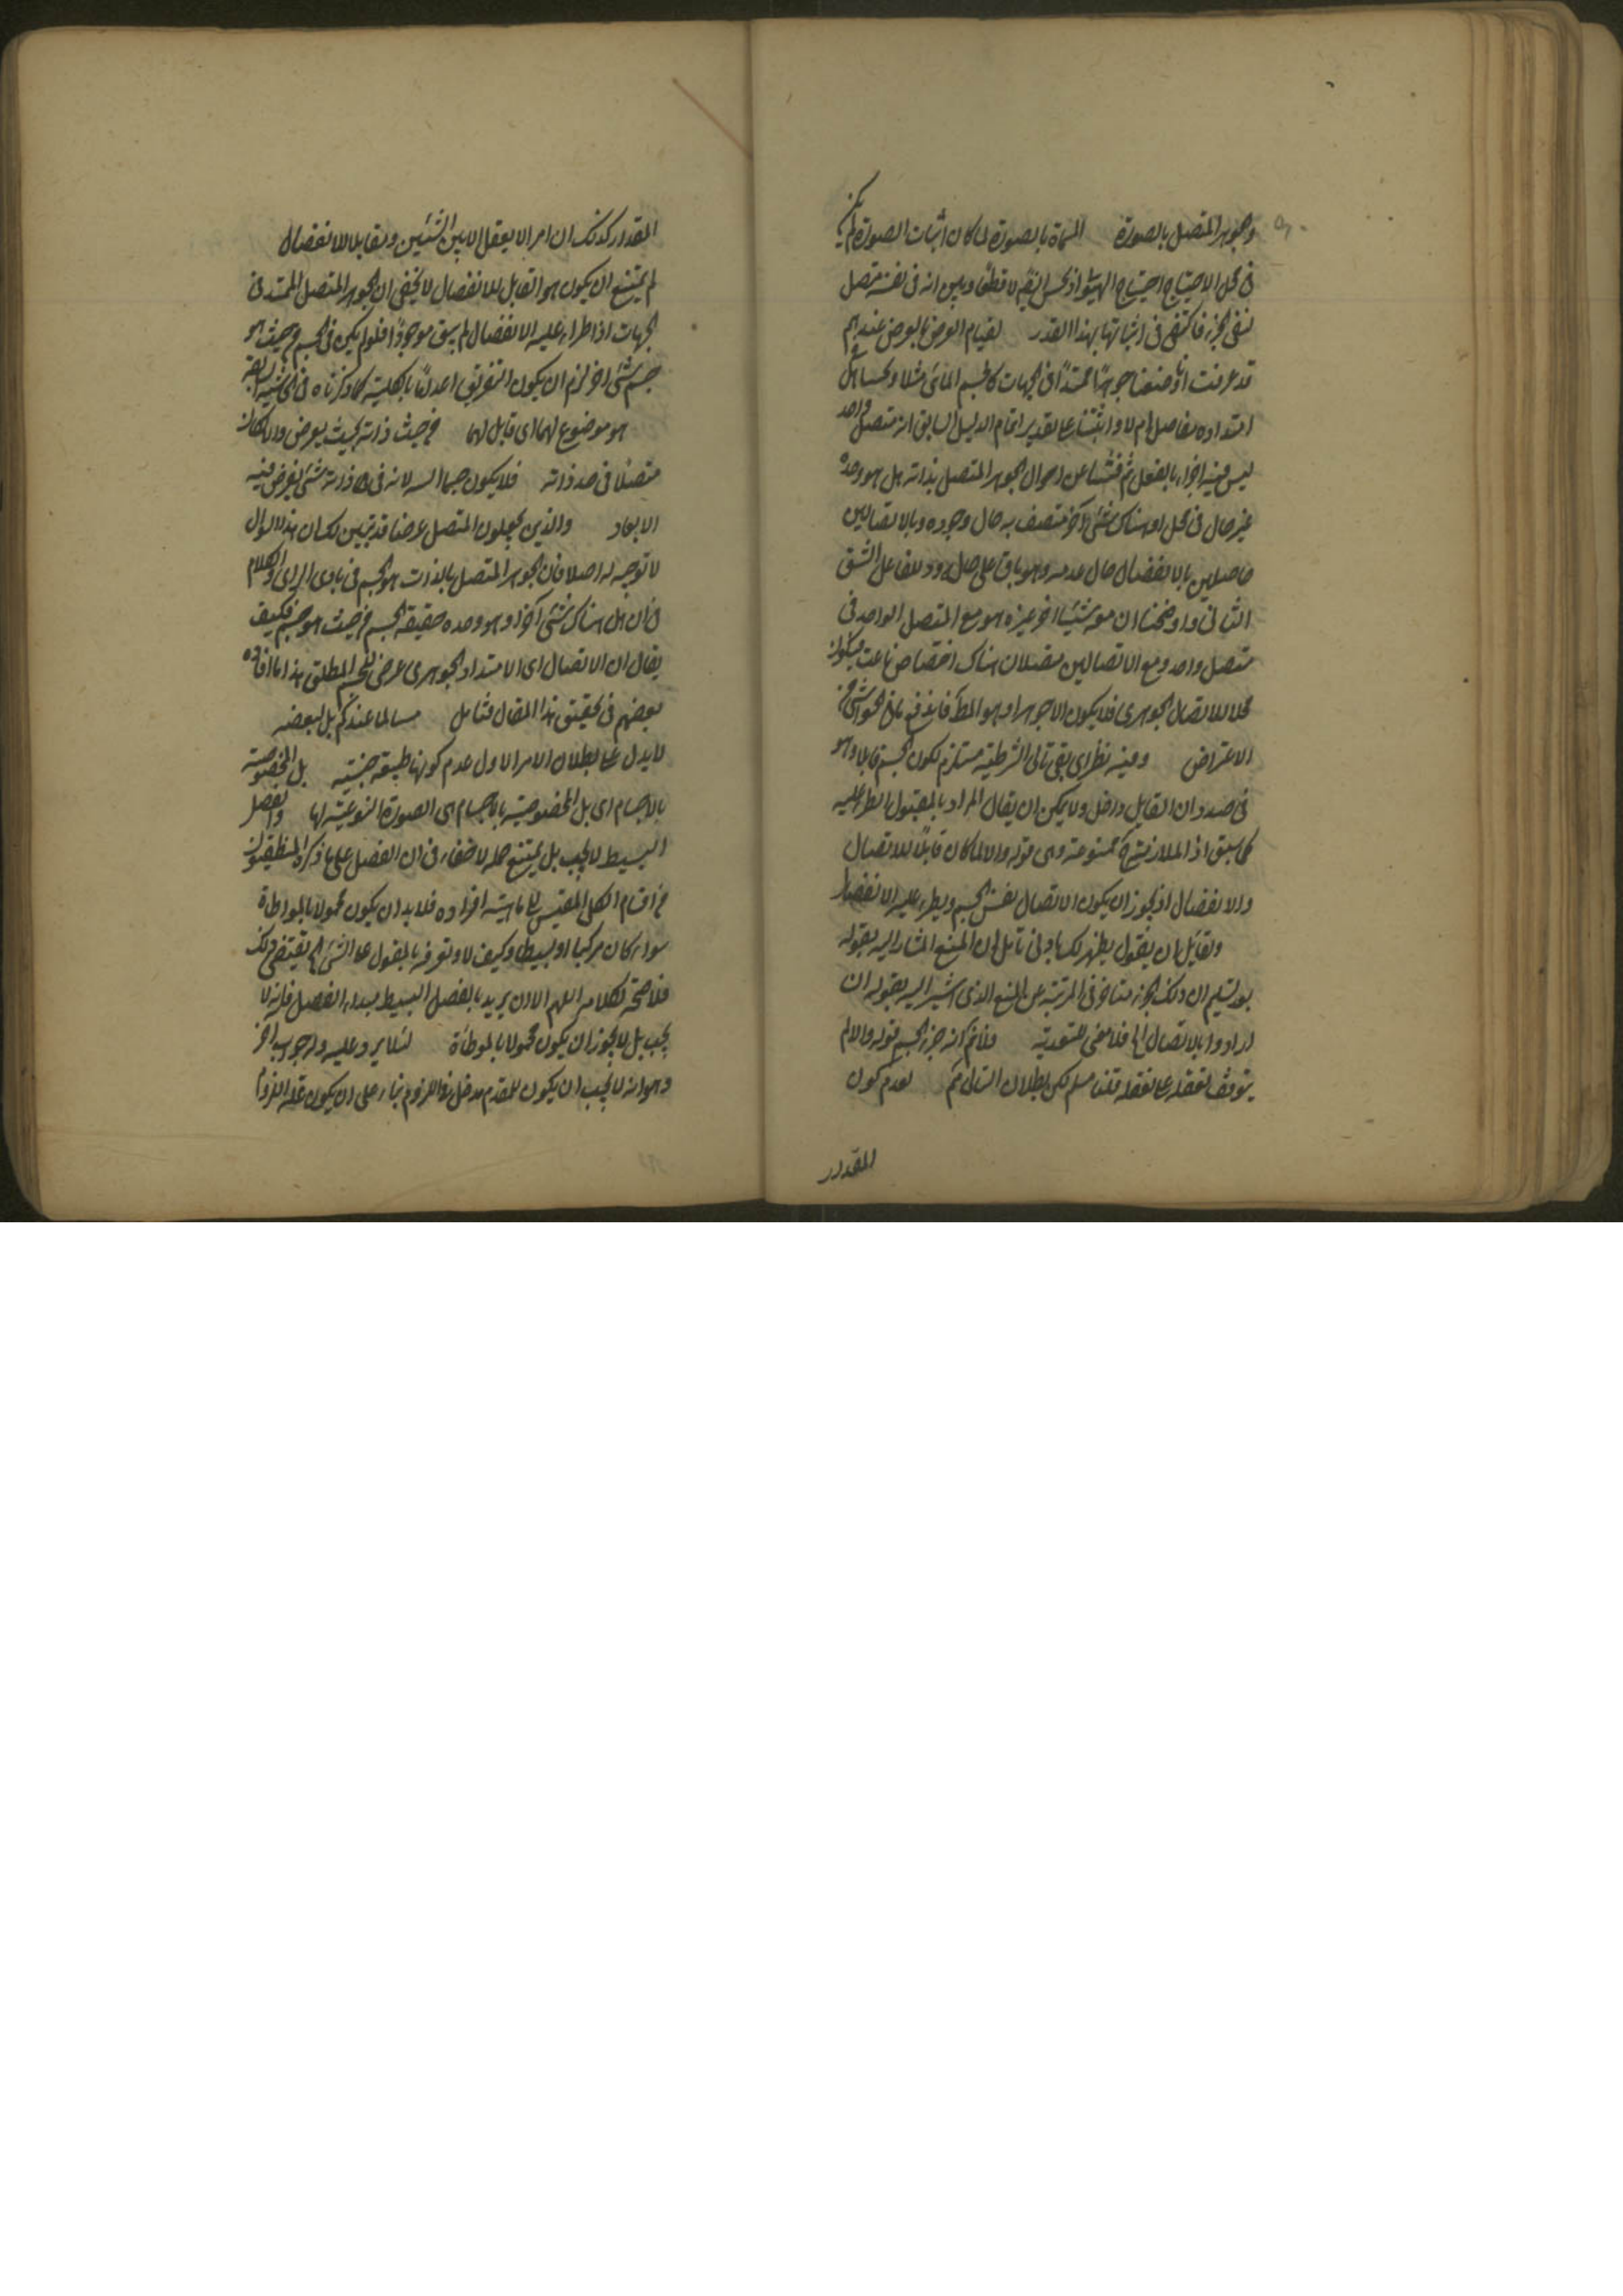 والجوهر المتصل بالصورة المسماة بالصورة لما كان اثبات الصورة لم يكن
في محل الاحتياج احتياج الهيولى اذ الجسم لا قطعا وبين انه في نفسه متصل
نفى الجزء فاكتفى في اثباتها بهذا القدر لقيام العرض بالعرض عندهم
قد عرفت انا وضعنا جوهرا ممتدا في الجهات كالجسم المائي مثلا هل في
امتداده مفاصل ام لا واثبتنا على تقدير اتمام الدليل السابق انه متصل واحد
ليس فيه اجزاء بالفعل ثم فتشنا عن احوال الجوهر المتصل بذاته هل هو وحده
غير حال في محل او هناك شئ آخر متصف به حال وجوده وبالاتصالين
حاصلين بالانفصال حال عدمه وهو باق على حاله الشق
الثاني واوضحنا ان معه شيئا اخر غيره هو مع المتصل الواحد في
متصل واحد ومع الاتصالين متصلان هناك اختصاص ناعت فيكون
محلا للاتصال الجوهري فلا يكون الا جوهرا وهو المط فاندفع الحواشي من
الاعتراض وفيه نظر اي بقي تالى الشرطية مستلزم لكون الجسم قابلا وهو
في صدد ان القابل داخل ولا يمكن ان يقال المراد بالمقبول الطر عليه
كما سبق اذ الملازمة ح ممنوعة وهى قوله والا لما كان قابلا للاتصال
والانفصال اذ يجوز ان يكون الاتصال نفس الجسم ويطرء عليه الانفصال
ولقايل ان يقول يظهر لك بادنى تامل ان المنع المشار اليه بقوله
بعد تسليم ان ذلك الجزء متاخر في المرتبة عن المنع الذى اشير اليه بقوله ان
ارادوا بالاتصال الخ فلا معنى للتعدية فلا نم انه جزء الجسم قوله والا لم
يتوقف تعقله على تعقله قلنا مسلم لكن بطلان التالي مم لعدم كون
المقدار
المقدار كذلك ان امر الا يعقل الا بين الشيئين والقابل للانفصال
لم يمتنع ان يكون هو القابل للانفصال لا يخفى ان الجوهر المتصل الممتد في
الجهات اذا طراء عليه الانفصال لم يبق موجودا فلو لم يكن في الجسم من حيث هو
جسم شئ اخر لزم ان يكون التفريق اعداما بالكلية كما ذكرناه في الحاشية السابقة
هو موضوع لهما اى قابل لهما من حيث ذاته بحيث يعرض والا لكان
متصلا في حد ذاته فلا يكون جسما لانه في حد ذاته شئ يفرض فيه
الابعاد والذين يجعلون المتصل عرضا قد تبين لك ان هذا السوال
لا توجه له اصلا فان الجوهر المتصل بالذات هو الجسم في بادى الراى والكلام
في ان هل هناك شئ آخر او هو وحده حقيقة الجسم من حيث هو جسم فكيف
يقال ان الاتصال اى الامتداد الجوهرى عرض للجسم المطلق هذا ما افاده
بعضهم في تحقيق هذا المقال فتامل مسالما عندكم بل لبعضه
لا يدل على بطلان الامر الاول عدم كونها طبيعة جنسية بل المخصوصة
بالاجسام اى بل المخصوصة بالاجسام هى الصورة النوعية لها والفصل
البسيط لا يجب بل يمتنع حمله لا خفاء في ان الفصل على ما ذكره المنطقيون
من اقسام الكلى المقيس الى ماهية افراده فلا بد ان يكون محمولا بالمواطاة
سواء كان مركبا او بسيطا وكيف لا وتعرفه بالمقول على الشئ الخ يقتضى ذلك
فلا صحة لكلامه اللهم الا ان يريد بالفصل البسيط مبداء الفصل فانه لا
يجب بل لا يجوز ان يكون محمولا بالمواطاة لئلا يرد عليه جواب آخر
وهو انه لا يجب ان يكون للمقدم مدخل في اللزوم بناء على ان يكون علة اللزوم